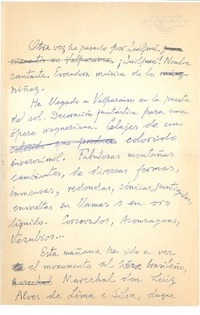 Otra vez he pasado por Quilpué,
encuentro en Valparaíso. ¡Quilpué! Nombre
cantante. Evocadora música de la
niñez.
He llegado a Valparaíso en la puesta
del sol. Decoración fantástica para una
ópera wagneriana. Celajes de
colorido que produce colorido
inverosímil. Fabulosas montañas
cambiantes, de diversas formas,
inmensas, redondas, cónicas, puntiagudas,
envueltas en llamas y en oro
líquido. Corcovados, Aconcaguas,
Vesubios...
Esta mañana he ido a ver
el monumento al héroe brasileño,
Marechal Marechal don Luiz
Alves de Lima e Silva, duque